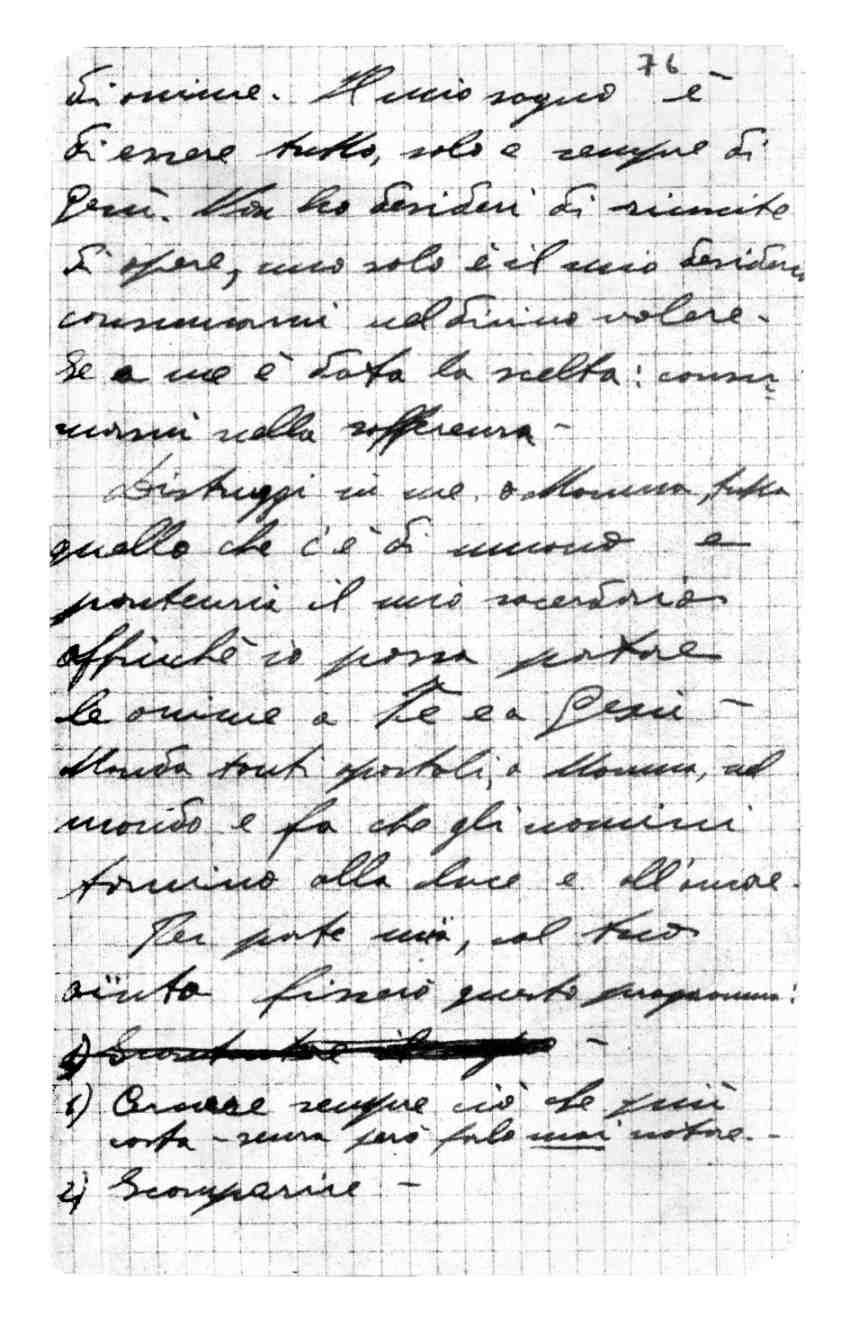 76
di anime. Il mio sogno è
di essere tutto, solo e sempre di
Gesù. Non ho desideri di riuscite
di opere, uno solo è il mio desiderio
consumarmi nel divino volere.
Se a me è data la scelta: consu-
marmi nella sofferenza -
Distruggi in me, o Mamma, tutto
quello che c'è di umano e
potenzia il mio sacerdozio
affinché io possa portare
le anime a Te e a Gesù -
Manda tanti apostoli, o Mamma, nel
mondo e fa che gli uomini
tornino alla luce e all'amore.
Per parte mia, col tuo
aiuto fisserò questo programma:
1) Cercare sempre ciò che più
costa - senza però farlo mai notare. -
2) Scomparire -